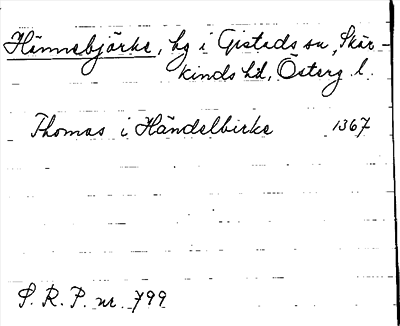 Hännebjörke, hg i Gistads sn, Skär-
kinds hd, Österg. l.
Thomas i Händelbirke 1367
S. R. P. nr. 799